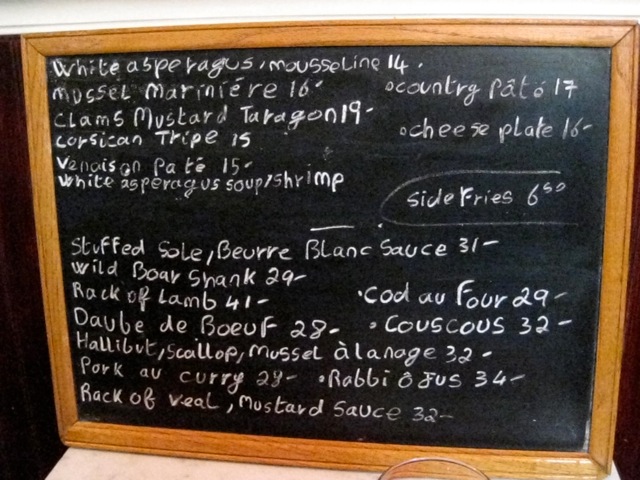 White asperagus, mousseline 14.
Mussel Mariniére 16-
•country Pâté 17
Clams Mustard Taragon 19-
•cheese plate 16-
Corsican Tripe 15
Venaison Paté 15-
White asperagus soup, shrimp
side Fries 6 50
Stuffed Sole, Beurre Blanc Sauce 31-
Wild Boar Shank 29-
Rack of Lamb 41-
•Cod au Four 29-
Daube de Boeuf 28-
•Couscous 32-
Hallibut, Scallop, Mussel à la nage 32-
Pork au curry 28-
•Rabbi ô Jus 34-
Rack of veal, Mustard Sauce 32-